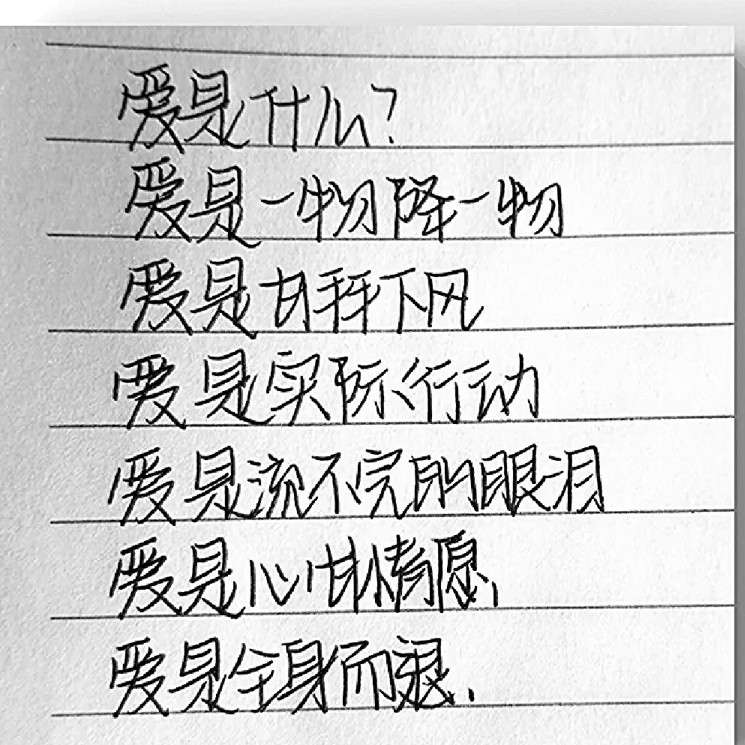 爱是什么?
爱是一物降一物
爱是甘拜下风
爱是实际行动
爱是流不完的眼泪
爱是心甘情愿,
爱是全身而退.